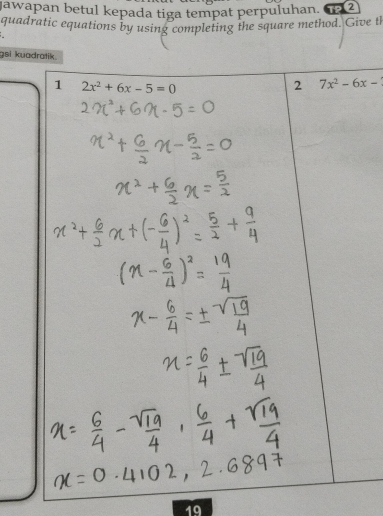 jawapan betul kepada tiga tempat perpuluhan. TP 2
quadratic equations by using completing the square method. Give
gsi kuadratik.
1 2x² + 6x − 5 = 0
2 7x² − 6x −
2x² + 6x - 5 = 0
x² + 6/2 x − 5/2 = 0
x² + 6/2 x = 5/2
x² + 6/2 x + (−6/4)² = 5/2 + 9/4
(x − 6/4)² = 19/4
x − 6/4 = ± √19/4
x = 6/4 ± √19/4
x = 6/4 − √19/4 , 6/4 + √19/4
x = 0.4102, 2.6897
19